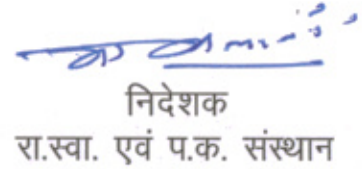 निदेशक
रा.स्वा. एवं प.क. संस्थान